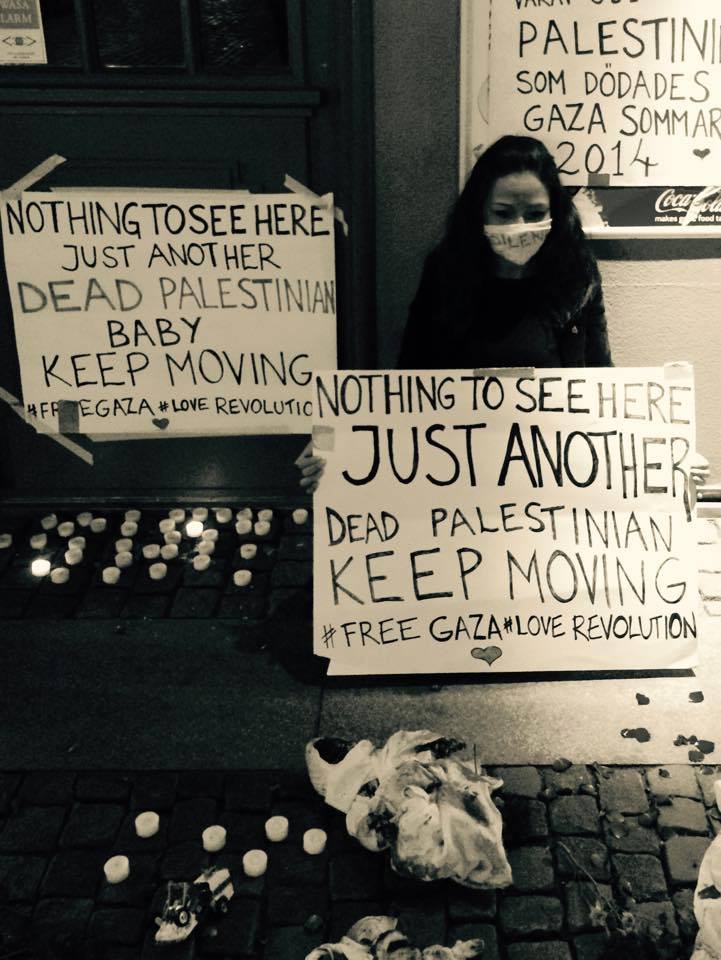 WASA
LARM
NOTHING TO SEE HERE
JUST ANOTHER
DEAD PALESTINIAN
BABY
KEEP MOVING
#FREEGAZA #LOVE REVOLUTIO
PALESTINI
SOM DÖDADES
GAZA SOMMAR
2014
Coca-Cola
makes good food ta
SILEN
NOTHING TO SEE HERE
JUST ANOTHER
DEAD PALESTINIAN
KEEP MOVING
# FREE GAZA #LOVE REVOLUTION